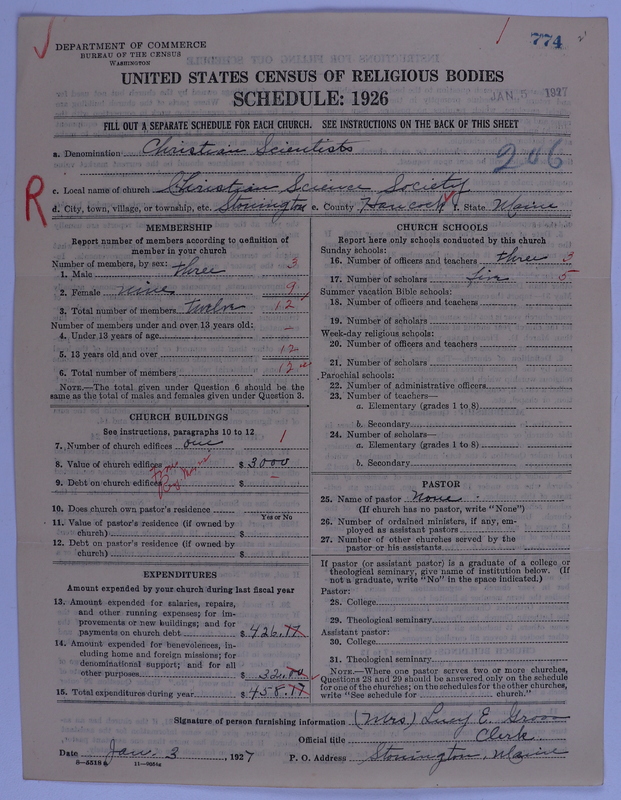 774
DEPARTMENT OF COMMERCE
BUREAU OF THE CENSUS
WASHINGTON
UNITED STATES CENSUS OF RELIGIOUS BODIES
SCHEDULE: 1926
JAN 5 1927
FILL OUT A SEPARATE SCHEDULE FOR EACH CHURCH. SEE INSTRUCTIONS ON THE BACK OF THIS SHEET
a. Denomination Christian Scientists
206
R
c. Local name of church Christian Science Society
d. City, town, village, or township, etc. Stonington e. County Hancock f. State Maine
MEMBERSHIP
Report number of members according to definition of
member in your church
Number of members, by sex:
1. Male three 3
2. Female nine 9
3. Total number of members twelve 12
Number of members under and over 13 years old:
4. Under 13 years of age –
5. 13 years old and over 12
6. Total number of members 12
NOTE.—The total given under Question 6 should be the
same as the total of males and females given under Question 3.
CHURCH BUILDINGS
See instructions, paragraphs 10 to 12
7. Number of church edifices one 1
8. Value of church edifices $ 3000
9. Debt on church edifices $ –
10. Does church own pastor's residence
Yes or No
11. Value of pastor's residence (if owned by
church) $
12. Debt on pastor's residence (if owned by
church) $
EXPENDITURES
Amount expended by your church during last fiscal year
13. Amount expended for salaries, repairs,
and other running expenses; for im-
provements or new buildings; and for
payments on church debt $ 426.17
14. Amount expended for benevolences, in-
cluding home and foreign missions; for
denominational support; and for all
other purposes $ 32.00
15. Total expenditures during year $ 458.17
CHURCH SCHOOLS
Report here only schools conducted by this church
Sunday schools:
16. Number of officers and teachers three 3
17. Number of scholars five 5
Summer vacation Bible schools:
18. Number of officers and teachers
19. Number of scholars
Week-day religious schools:
20. Number of officers and teachers
21. Number of scholars
Parochial schools:
22. Number of administrative officers
23. Number of teachers—
a. Elementary (grades 1 to 8)
b. Secondary
24. Number of scholars—
a. Elementary (grades 1 to 8)
b. Secondary
PASTOR
25. Name of pastor None
(If church has no pastor, write "None")
26. Number of ordained ministers, if any, em-
ployed as assistant pastors
27. Number of other churches served by the
pastor or his assistants
If pastor (or assistant pastor) is a graduate of a college or
theological seminary, give name of institution below. (If
not a graduate, write "No" in the space indicated.)
Pastor:
28. College
29. Theological seminary
Assistant pastor:
30. College
31. Theological seminary
NOTE.—Where one pastor serves two or more churches,
Questions 28 and 29 should be answered only on the schedule
for one of the churches; on the schedules for the other churches,
write "See schedule for church."
Signature of person furnishing information (Mrs) Lucy E. Gross
Official title Clerk
Date Jan. 3, 1927 P. O. Address Stonington, Maine
8—5518 a 11—9054a